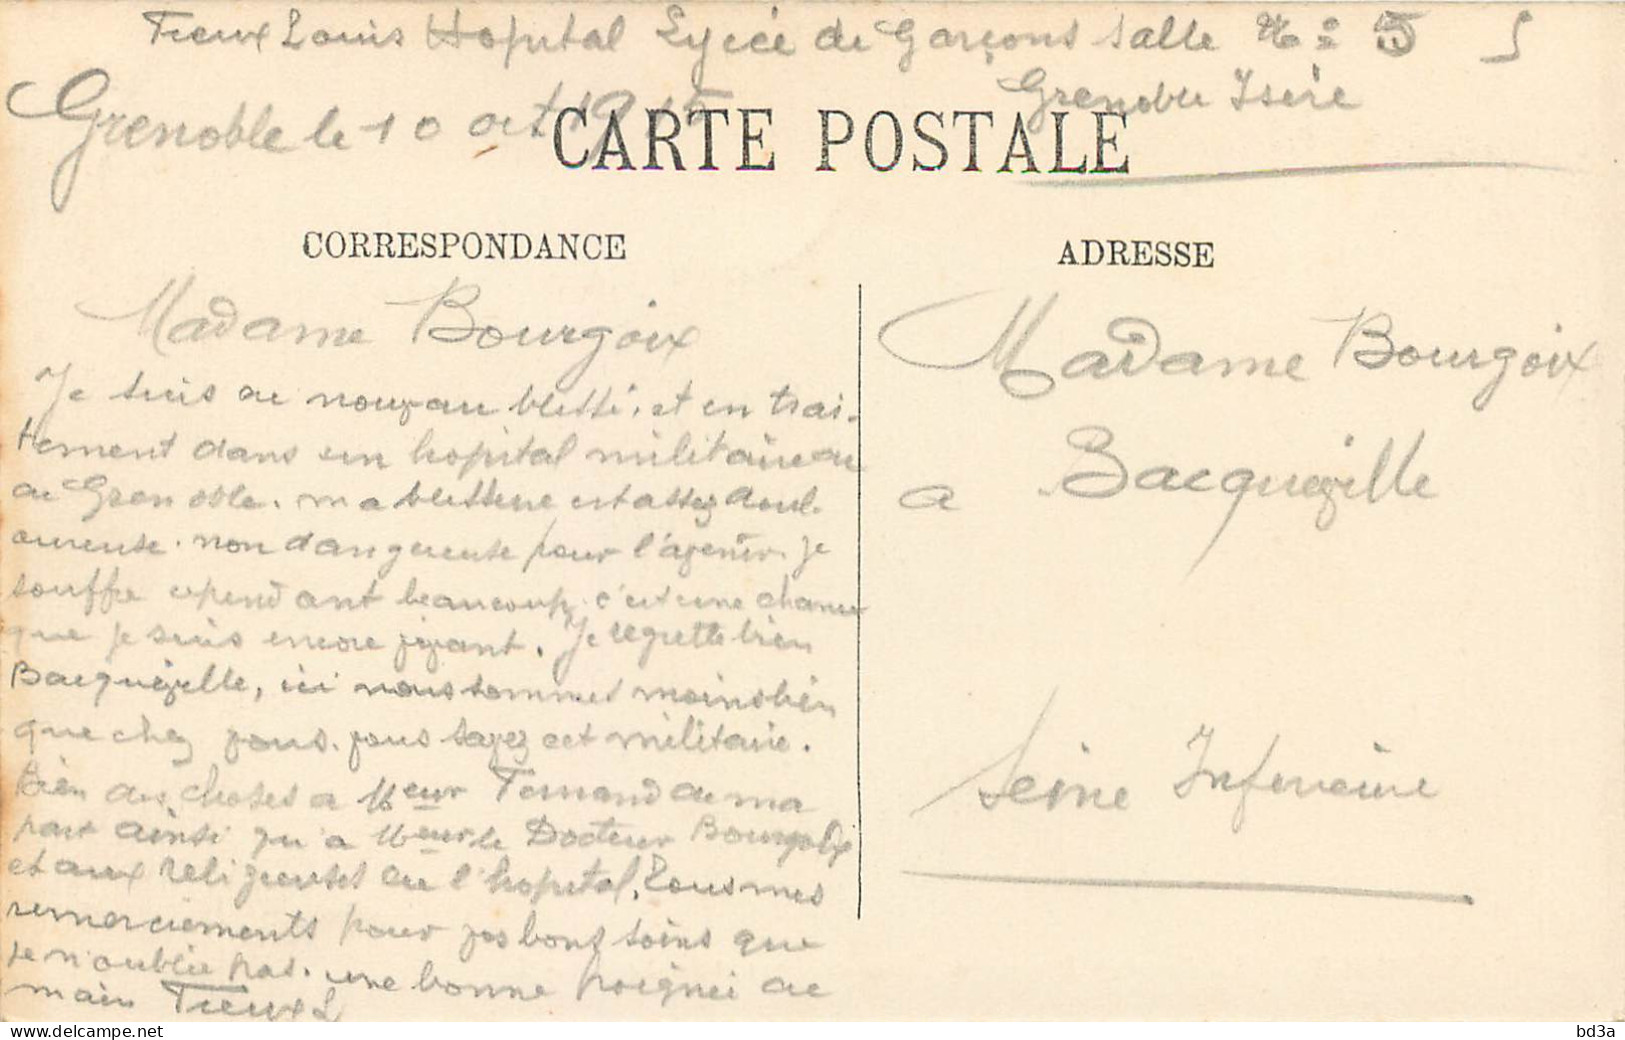 Treux Louis Hopital Lycée de Garçons salle No = 5
Grenoble Isère
Grenoble le 10 oct 1915
CARTE POSTALE
CORRESPONDANCE
Madame Bourgoix
Je suis de nouveau blessé. et en trai-
tement dans un hopital militaire de
de Grenoble. ma blessure est assez doul-
oureuse. non dangereuse pour l'avenir. je
souffre cependant beaucoup. c'est une chance
que je suis encore vivant. Je regrette bien
Bacqueville, ici nous sommes moins bien
que chez vous. vous savez cet militaire.
Bien des choses a Meur Fernand de ma
part ainsi qu'a Meur le Docteur Bourgoix
et aux religieuses de l'hopital. Tous mes
remerciements pour vos bons soins que
je n'oublie pas. une bonne poignée de
main Treux L
ADRESSE
Madame Bourgoix
a Bacqueville
Seine Inferieure
www.delcampe.net
bd3a